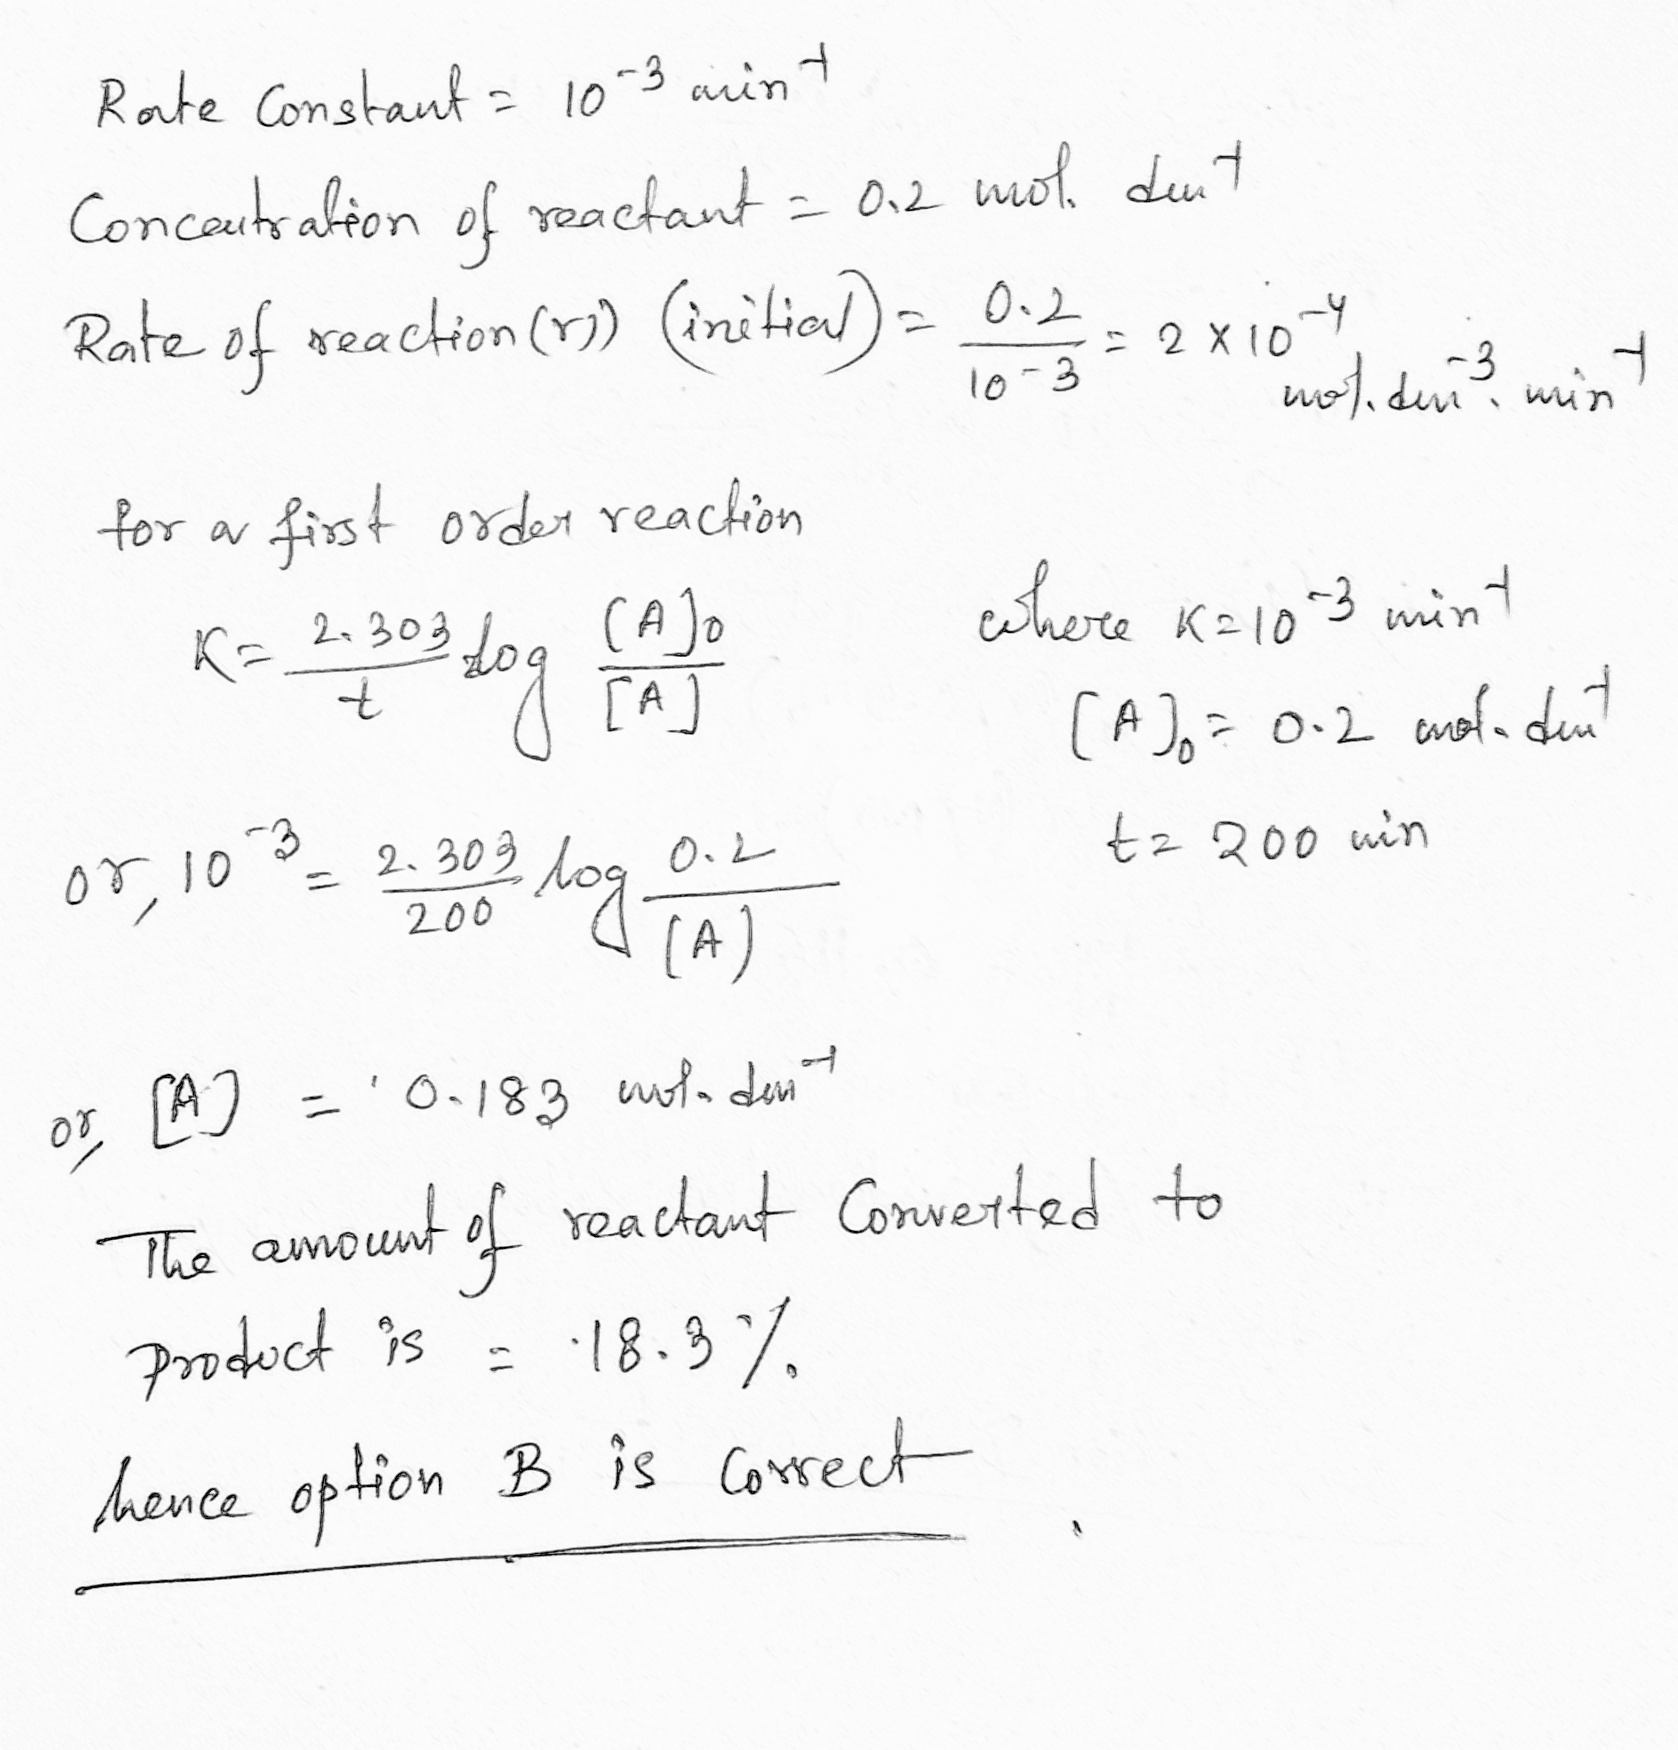 Rate Constant = 10⁻³ min⁻¹
Concentration of reactant = 0.2 mol. dm⁻¹
Rate of reaction (r)) (initial) = 0.2 / 10⁻³ = 2 × 10⁻⁴ mol. dm⁻³. min⁻¹
for a first order reaction
K = 2.303 / t log [A]₀ / [A]
where K = 10⁻³ min⁻¹
[A]₀ = 0.2 mol. dm⁻¹
t = 200 min
or, 10⁻³ = 2.303 / 200 log 0.2 / [A]
or, [A] = 0.183 mol. dm⁻¹
The amount of reactant Converted to
product is = 18.3 %.
hence option B is Correct